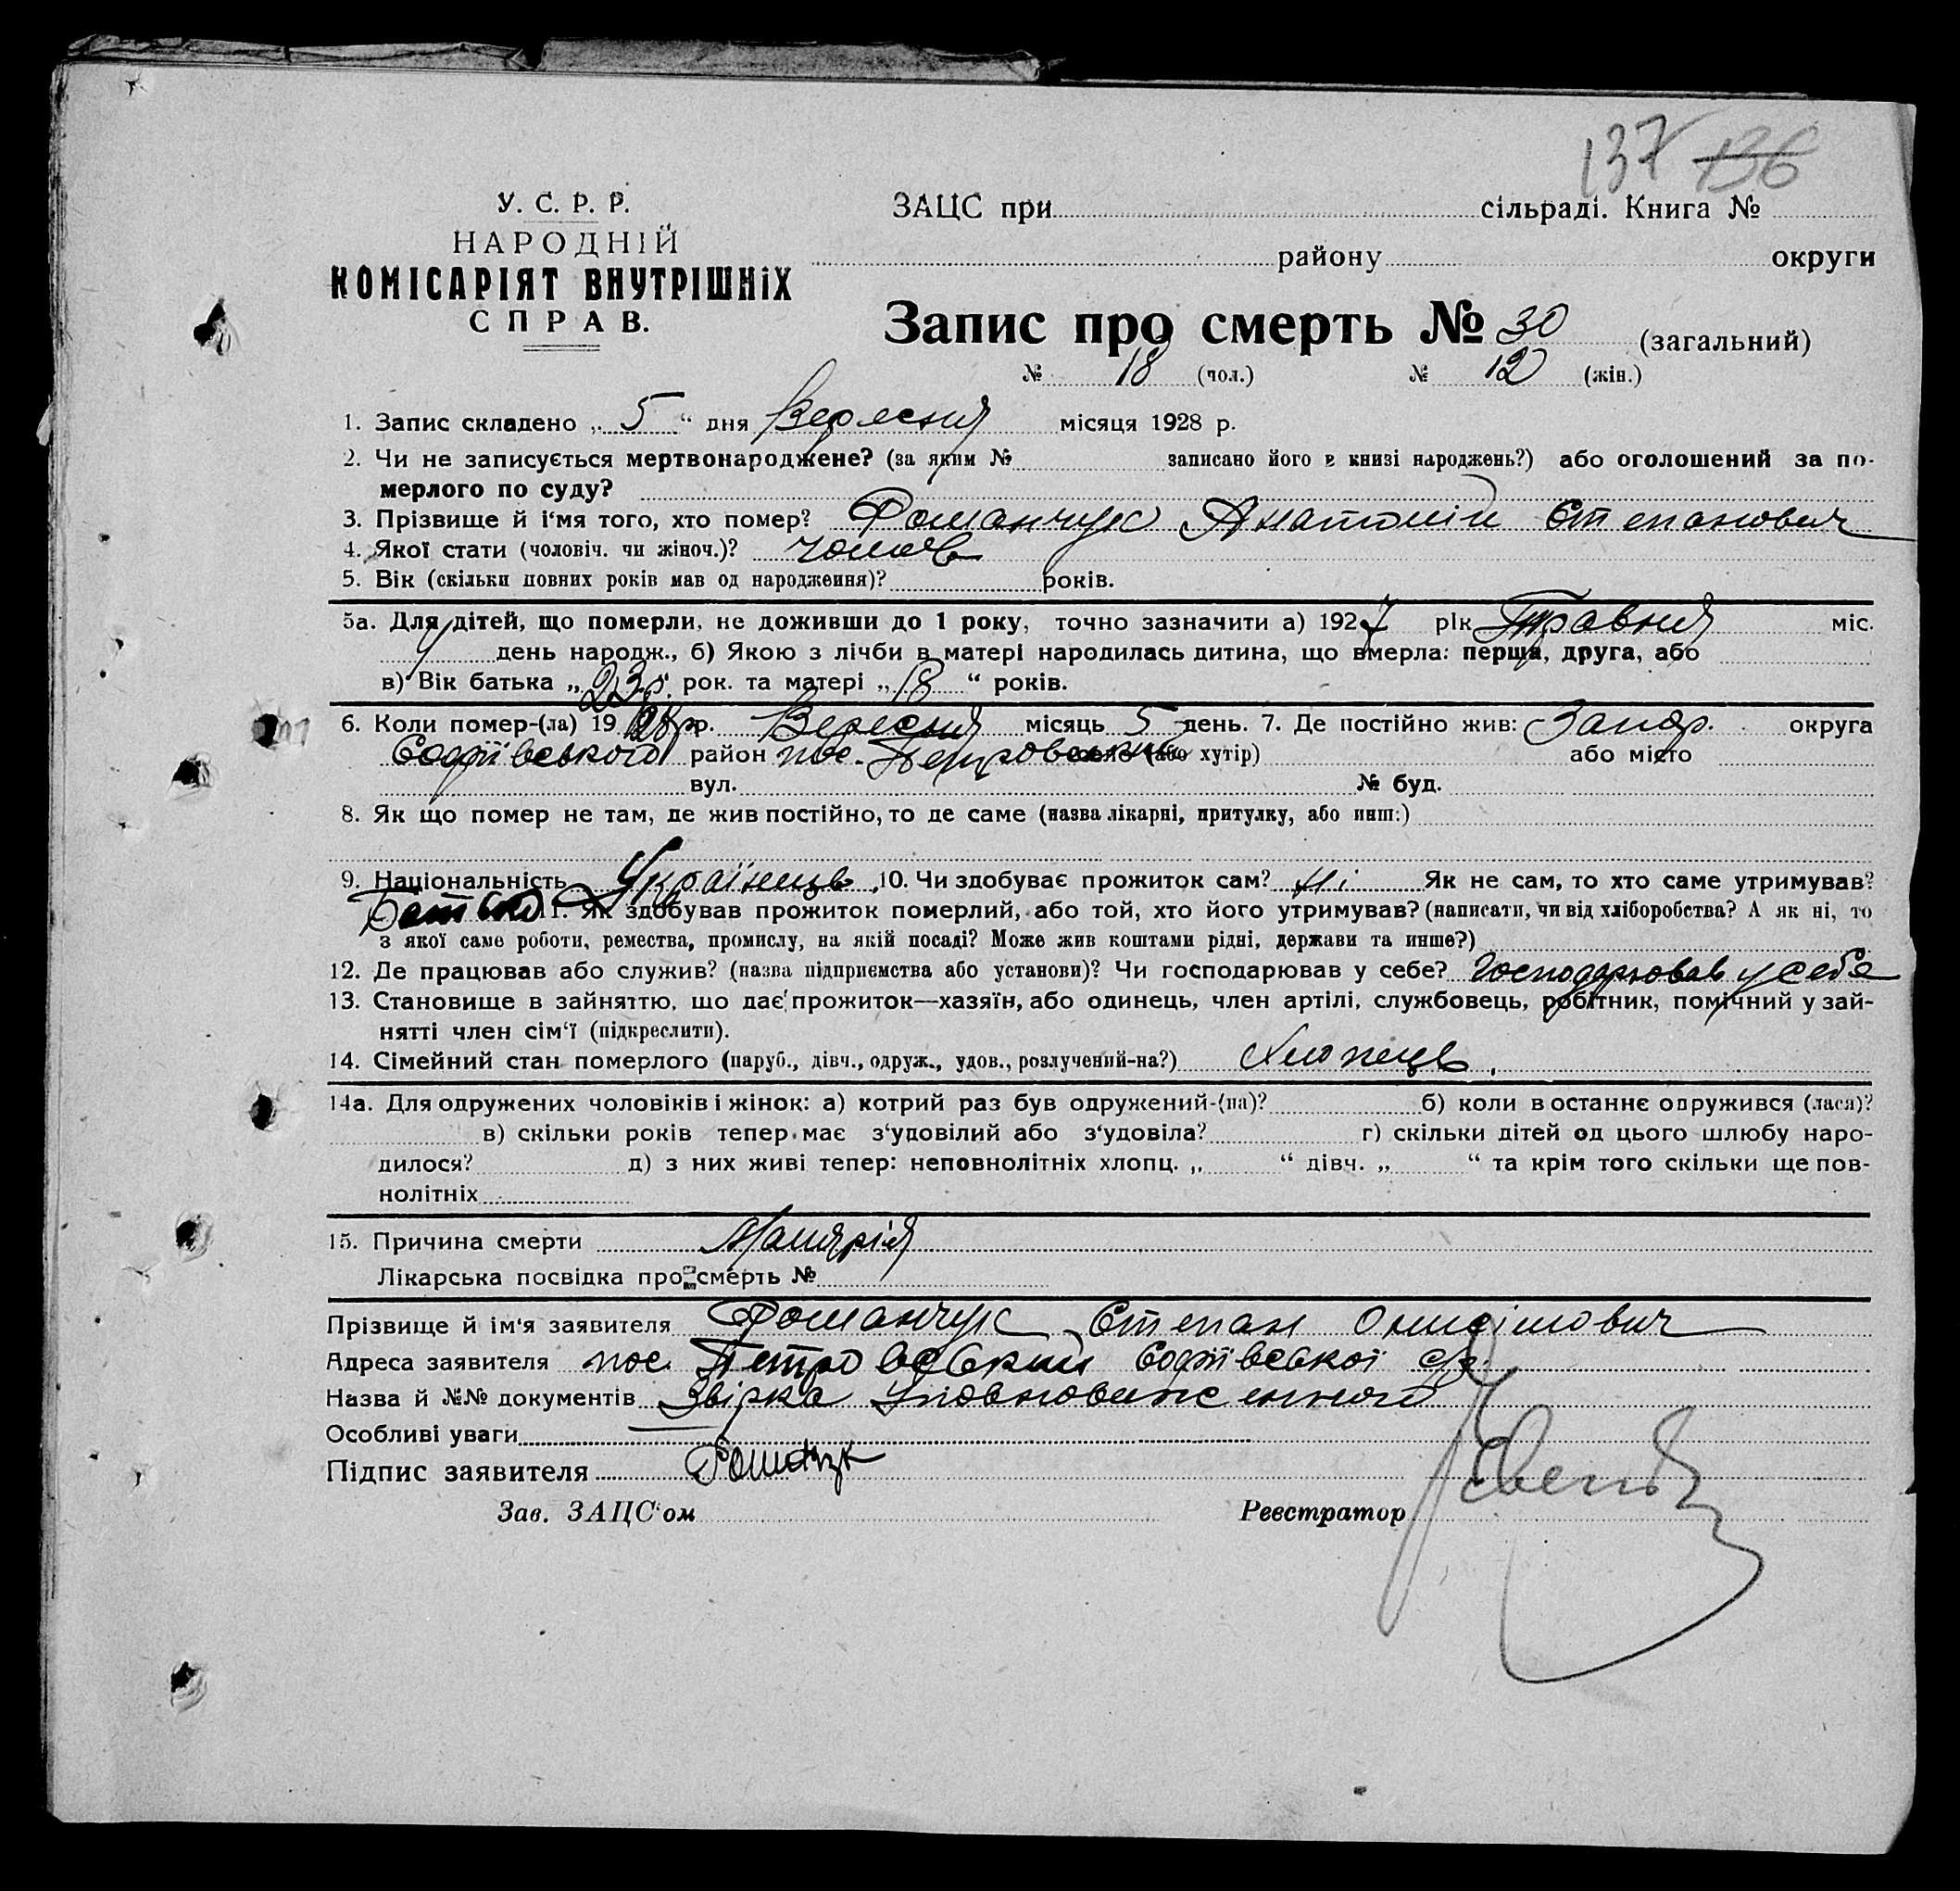 137 136
У. С. Р. Р.
НАРОДНІЙ
КОМІСАРІЯТ ВНУТРІШНІХ
СПРАВ.
ЗАЦС при сільраді. Книга №
району округи
Запис про смерть № 30 (загальний)
№ 18 (чол.) № 12 (жін.)
1. Запис складено „ 5 “ дня Вересня місяця 1928 р.
2. Чи не записується мертвонароджене? (за яким № записано його в книзі народжень?) або оголошений за по-
мерлого по суду?
3. Прізвище й і‘мя того, хто помер? Романчук Анатолій Степанович
4. Якої стати (чоловіч. чи жіноч.)? чолов
5. Вік (скільки повних років мав од народження)? років.
5а. Для дітей, що померли, не доживши до 1 року, точно зазначити а) 1927 рік Травня міс.
день народж., б) Якою з лічби в матері народилась дитина, що вмерла: перша, друга, або
в) Вік батька „ 23 р. рок. та матері „ 18 “ років.
6. Коли помер-(ла) 19 28 р. Вересня місяць 5 день. 7. Де постійно жив: Запор. округа
Софіївського район пос. Петровський село (або хутір) або місто
вул. № буд.
8. Як що помер не там, де жив постійно, то де саме (назва лікарні, притулку, або инш:)
9. Національність Українець 10. Чи здобуває прожиток сам? ні Як не сам, то хто саме утримував?
Батько 11. Як здобував прожиток померлий, або той, хто його утримував? (написати, чи від хліборобства? А як ні, то
з якої саме роботи, ремества, промислу, на якій посаді? Може жив коштами рідні, держави та инше?)
12. Де працював або служив? (назва підприємства або установи)? Чи господарював у себе? Господарював у себе
13. Становище в зайняттю, що дає прожиток—хазяїн, або одинець, член артілі, службовець, робітник, помічний у зай-
нятті член сім‘ї (підкреслити).
14. Сімейний стан померлого (паруб., дівч., одруж., удов., розлучений-на?) Хлопець.
14а. Для одружених чоловіків і жінок: а) котрий раз був одружений-(на)? б) коли в останнє одружився (лася)?
в) скільки років тепер має з‘удовілий або з‘удовіла? г) скільки дітей од цього шлюбу наро-
дилося? д) з них живі тепер: неповнолітніх хлопц. „ “ дівч. „ “ та крім того скільки ще пов-
нолітніх
15. Причина смерти Малярія
Лікарська посвідка про смерть №
Прізвище й ім‘я заявителя Романчук Степан Онисімович
Адреса заявителя пос. Петровський Софіївської с/р.
Назва й №№ документів Звірка Уповноваженного
Особливі уваги
Підпис заявителя Романчук
Зав. ЗАЦС‘ом Реестратор